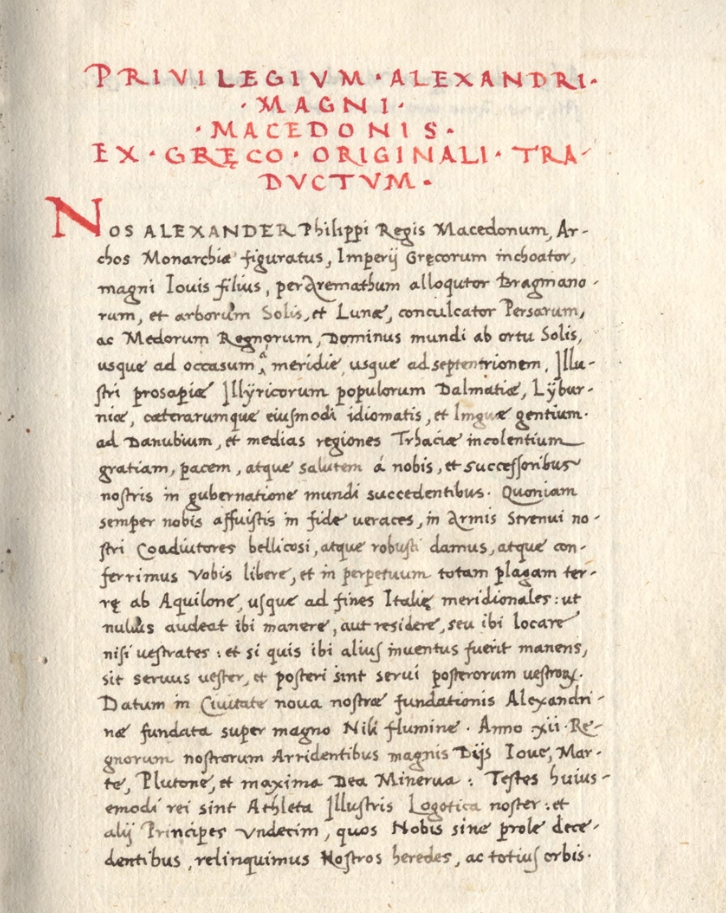 PRIVILEGIVM · ALEXANDRI ·
· MAGNI ·
· MACEDONIS ·
EX · GRĘCO · ORIGINALI · TRA-
DVCTVM ·
NOS ALEXANDER Philippi Regis Macedonum, Ar-
chos Monarchiæ figuratus, Imperij Gręcorum inchoator,
magni Iouis filius, per alloqutor Bragmano-
rum, et arborum Solis, et Lunæ, conculcator Persarum,
ac Medorum Regnorum, Dominus mundi ab ortu Solis,
usque ad occasum, a meridie, usque ad septentrionem, Illu-
stri prosapiæ Illÿricorum populorum Dalmatiæ, Lÿbur-
niæ, cæterarumque eiusmodi idiomatis, et linguæ gentium.
ad Danubium, et medias regiones Trhaciæ incolentium
gratiam, pacem, atque salutem á nobis, et successoribus
nostris in gubernatione mundi succedentibus. Quoniam
semper nobis affuistis in fide veraces, in Armis Strenui no-
stri Coadiutores bellicosi, atque robusti damus, atque con-
ferrimus vobis libere, et in perpetuum totam plagam ter-
rę ab Aquilone, usque ad fines Italię meridionales: ut
nullus audeat ibi manere, aut residere, seu ibi locare
nisi vestrates: et si quis ibi alius inuentus fuerit manens,
sit seruus vester, et posteri sint serui posterorum vestroꝝ.
Datum in Ciuitate noua nostræ fundationis Alexandri-
næ fundata super magno Nili flumine. Anno xii. Re-
gnorum nostrorum Arridentibus magnis Dijs Ioue, Mar-
te, Plutone, et maxima Dea Minerua: Testes huius-
emodi rei sint Athleta Illustris Logotica noster: et
alij Principes vndecim, quos Nobis sine prole dece-
dentibus, relinquimus Nostros heredes, ac totius orbis.